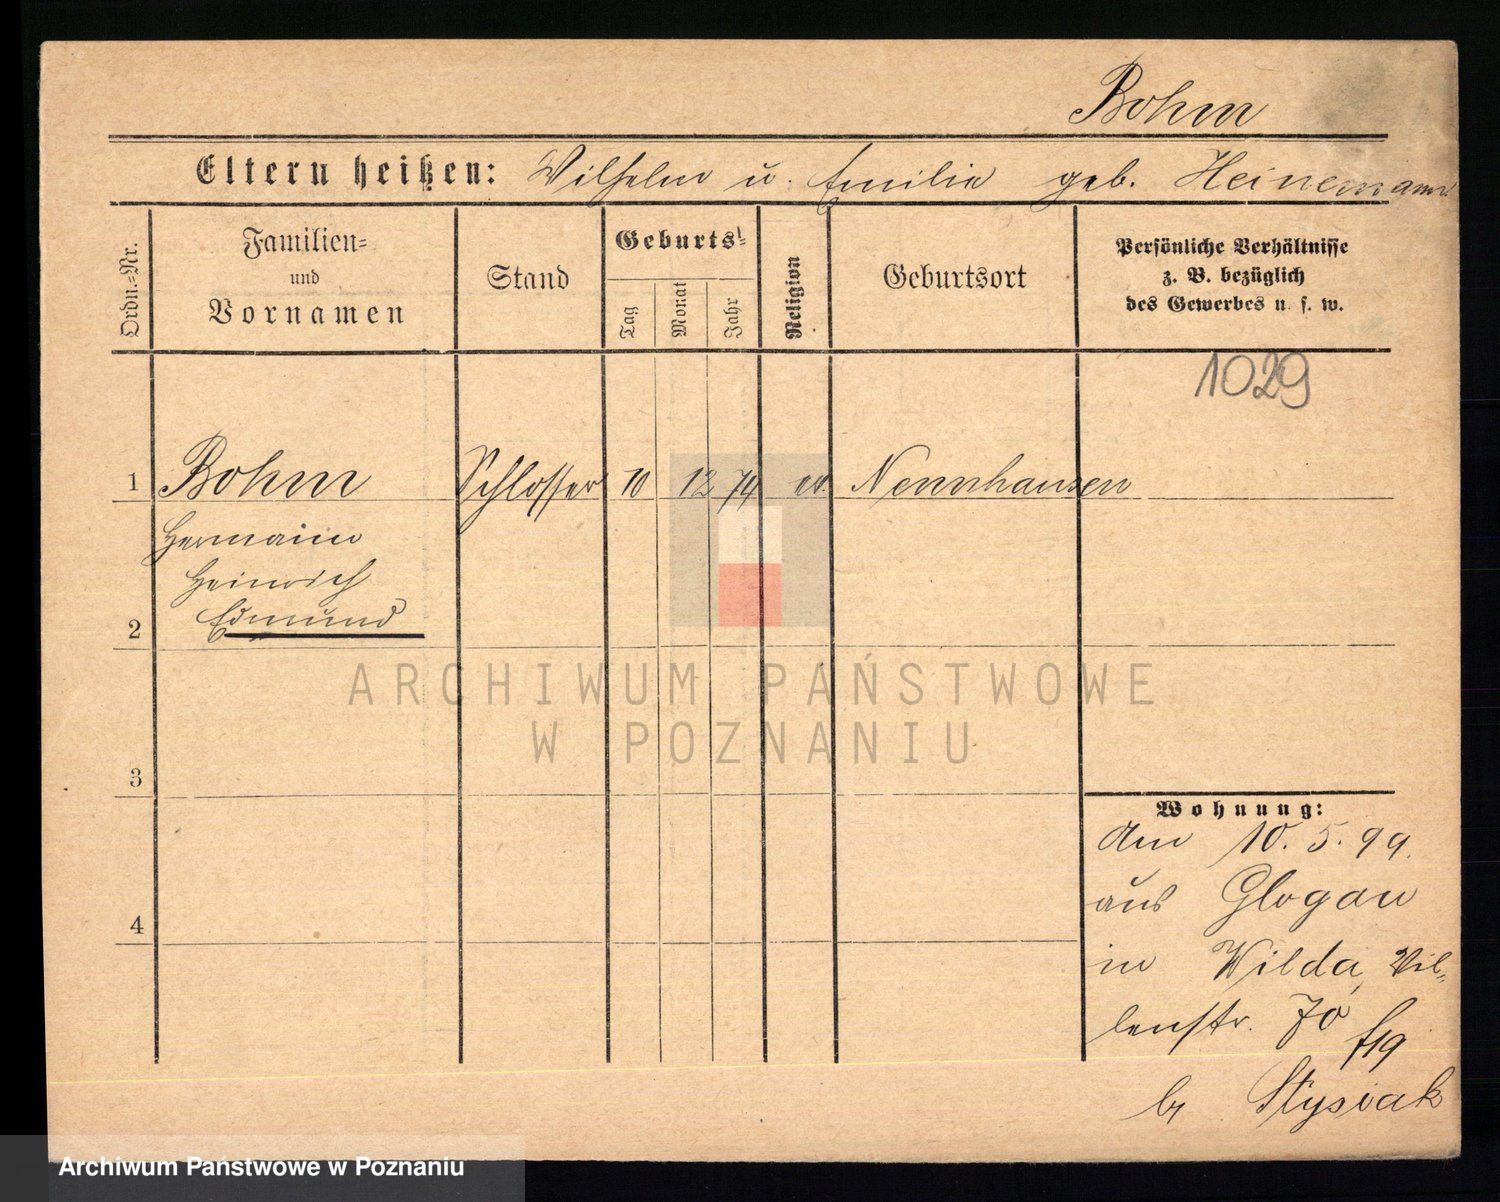 Bohm
Eltern heißen: Wilhelm u. Emilie geb. Heinemann
Ordn.-Nr.
Familien-
und
Vornamen
Stand
Geburts-
Tag
Monat
Jahr
Religion
Geburtsort
Persönliche Verhältnisse
z. B. bezüglich
des Gewerbes u. s. w.
1029
1 Bohm Schlosser 10 12 74 ev. Nennhausen
Hermann
Heinrich
Edmund
2
ARCHIWUM PAŃSTWOWE
W POZNANIU
3
Wohnung:
Am 10. 5. 99.
aus Glogau
4
in Wilda, Vil-
lenstr.
b/ Stysiak
Archiwum Państwowe w Poznaniu